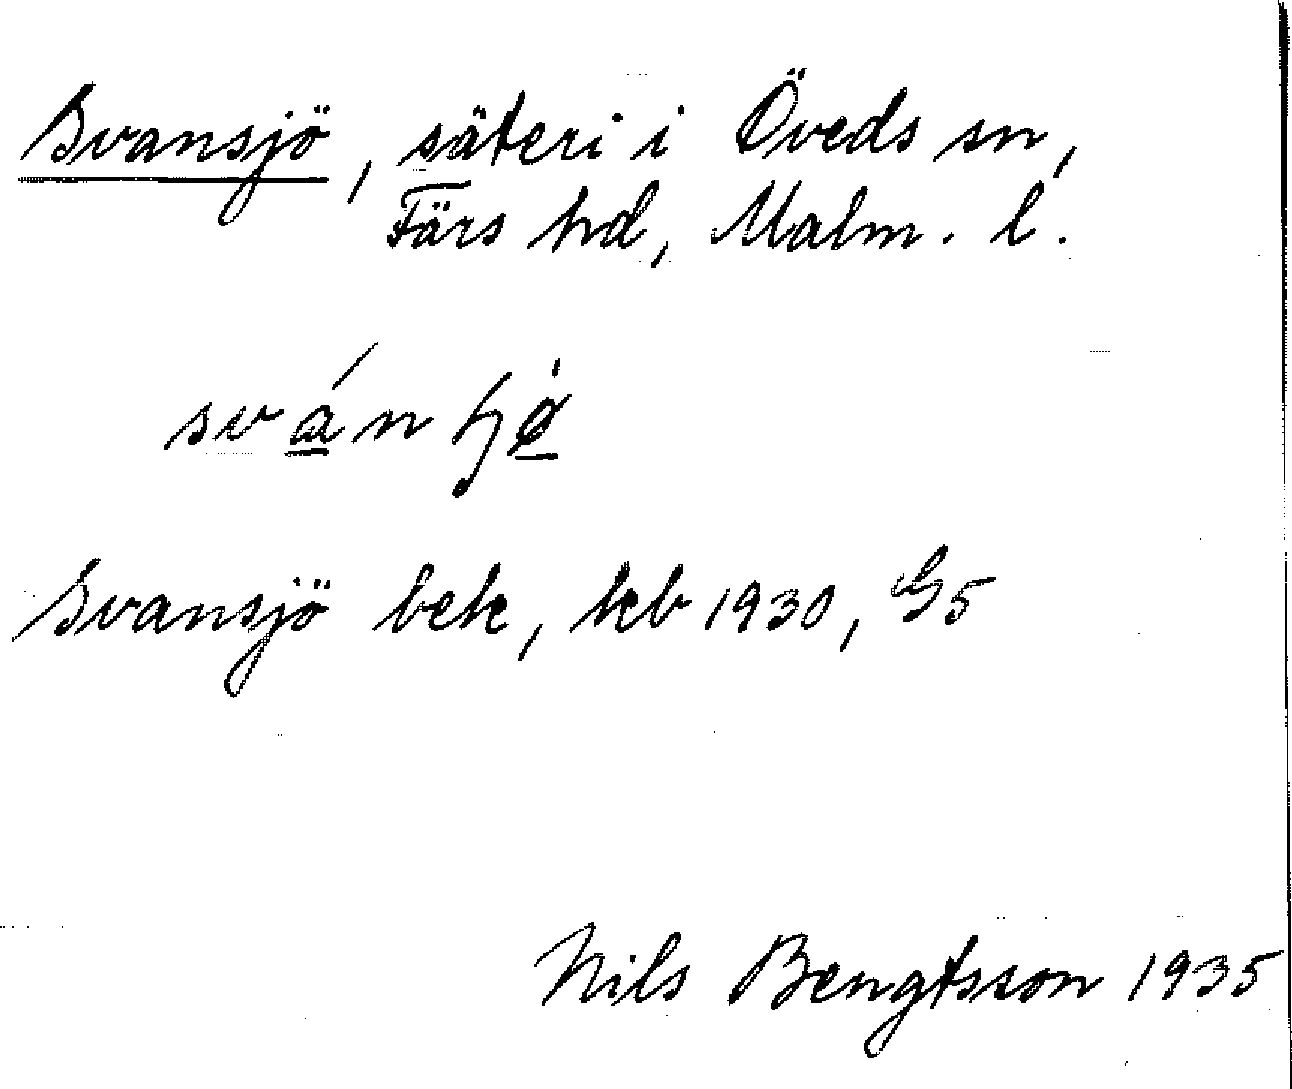 Svansjö, säteri i Öveds sn,
Färs hd, Malm. l.
Svansjö bek, kb 1930, G5
Nils Bengtsson 1935